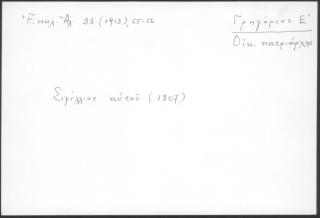 Ἐκκλ. Ἀλ. 33 (1913), 55-56
Γρηγόριος Ε΄
Οἰκ. πατριάρχης
Σιγίλλιον αὐτοῦ (1807)